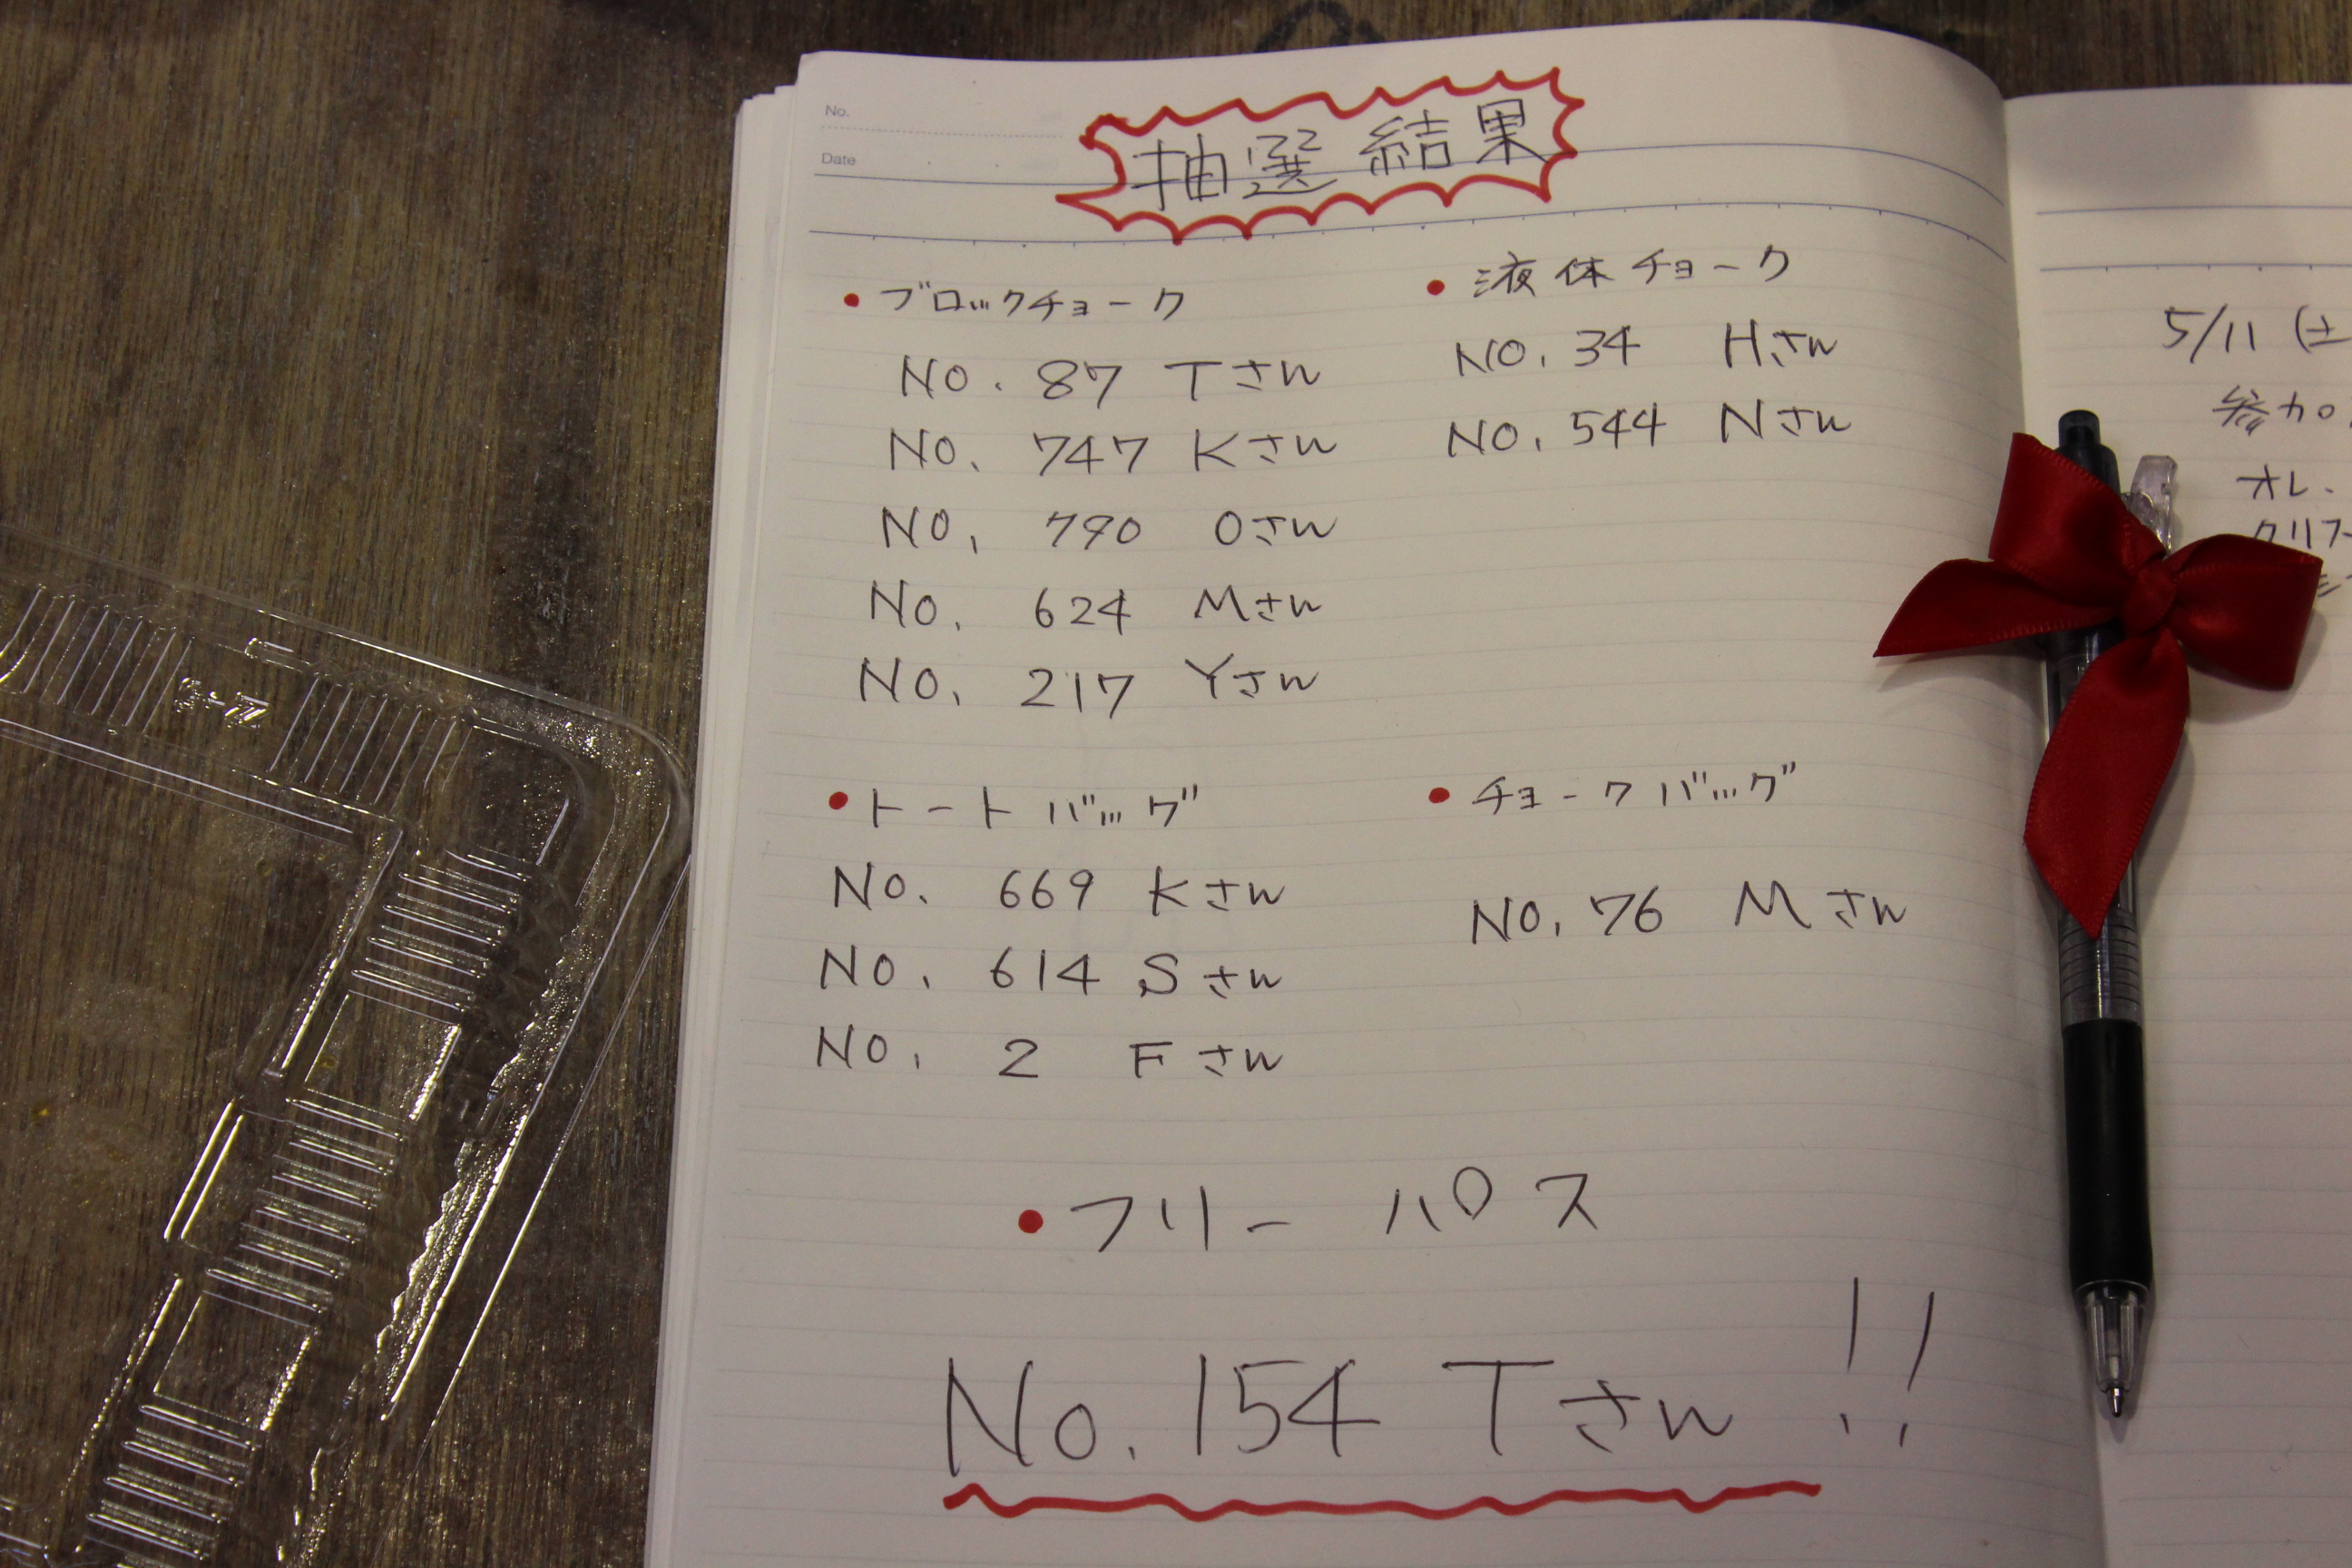 No.
Date
抽選結果
• ブロックチョーク
NO. 87 Tさん
NO. 747 Kさん
NO. 790 Oさん
NO. 624 Mさん
NO. 217 Yさん
• 液体チョーク
NO. 34 Hさん
NO. 544 Nさん
• トートバッグ
NO. 669 Kさん
NO. 614 Sさん
NO. 2 Fさん
• チョークバッグ
NO. 76 Mさん
• フリーパス
No. 154 Tさん!!
5/11 (土
参加
オレ
クリフ